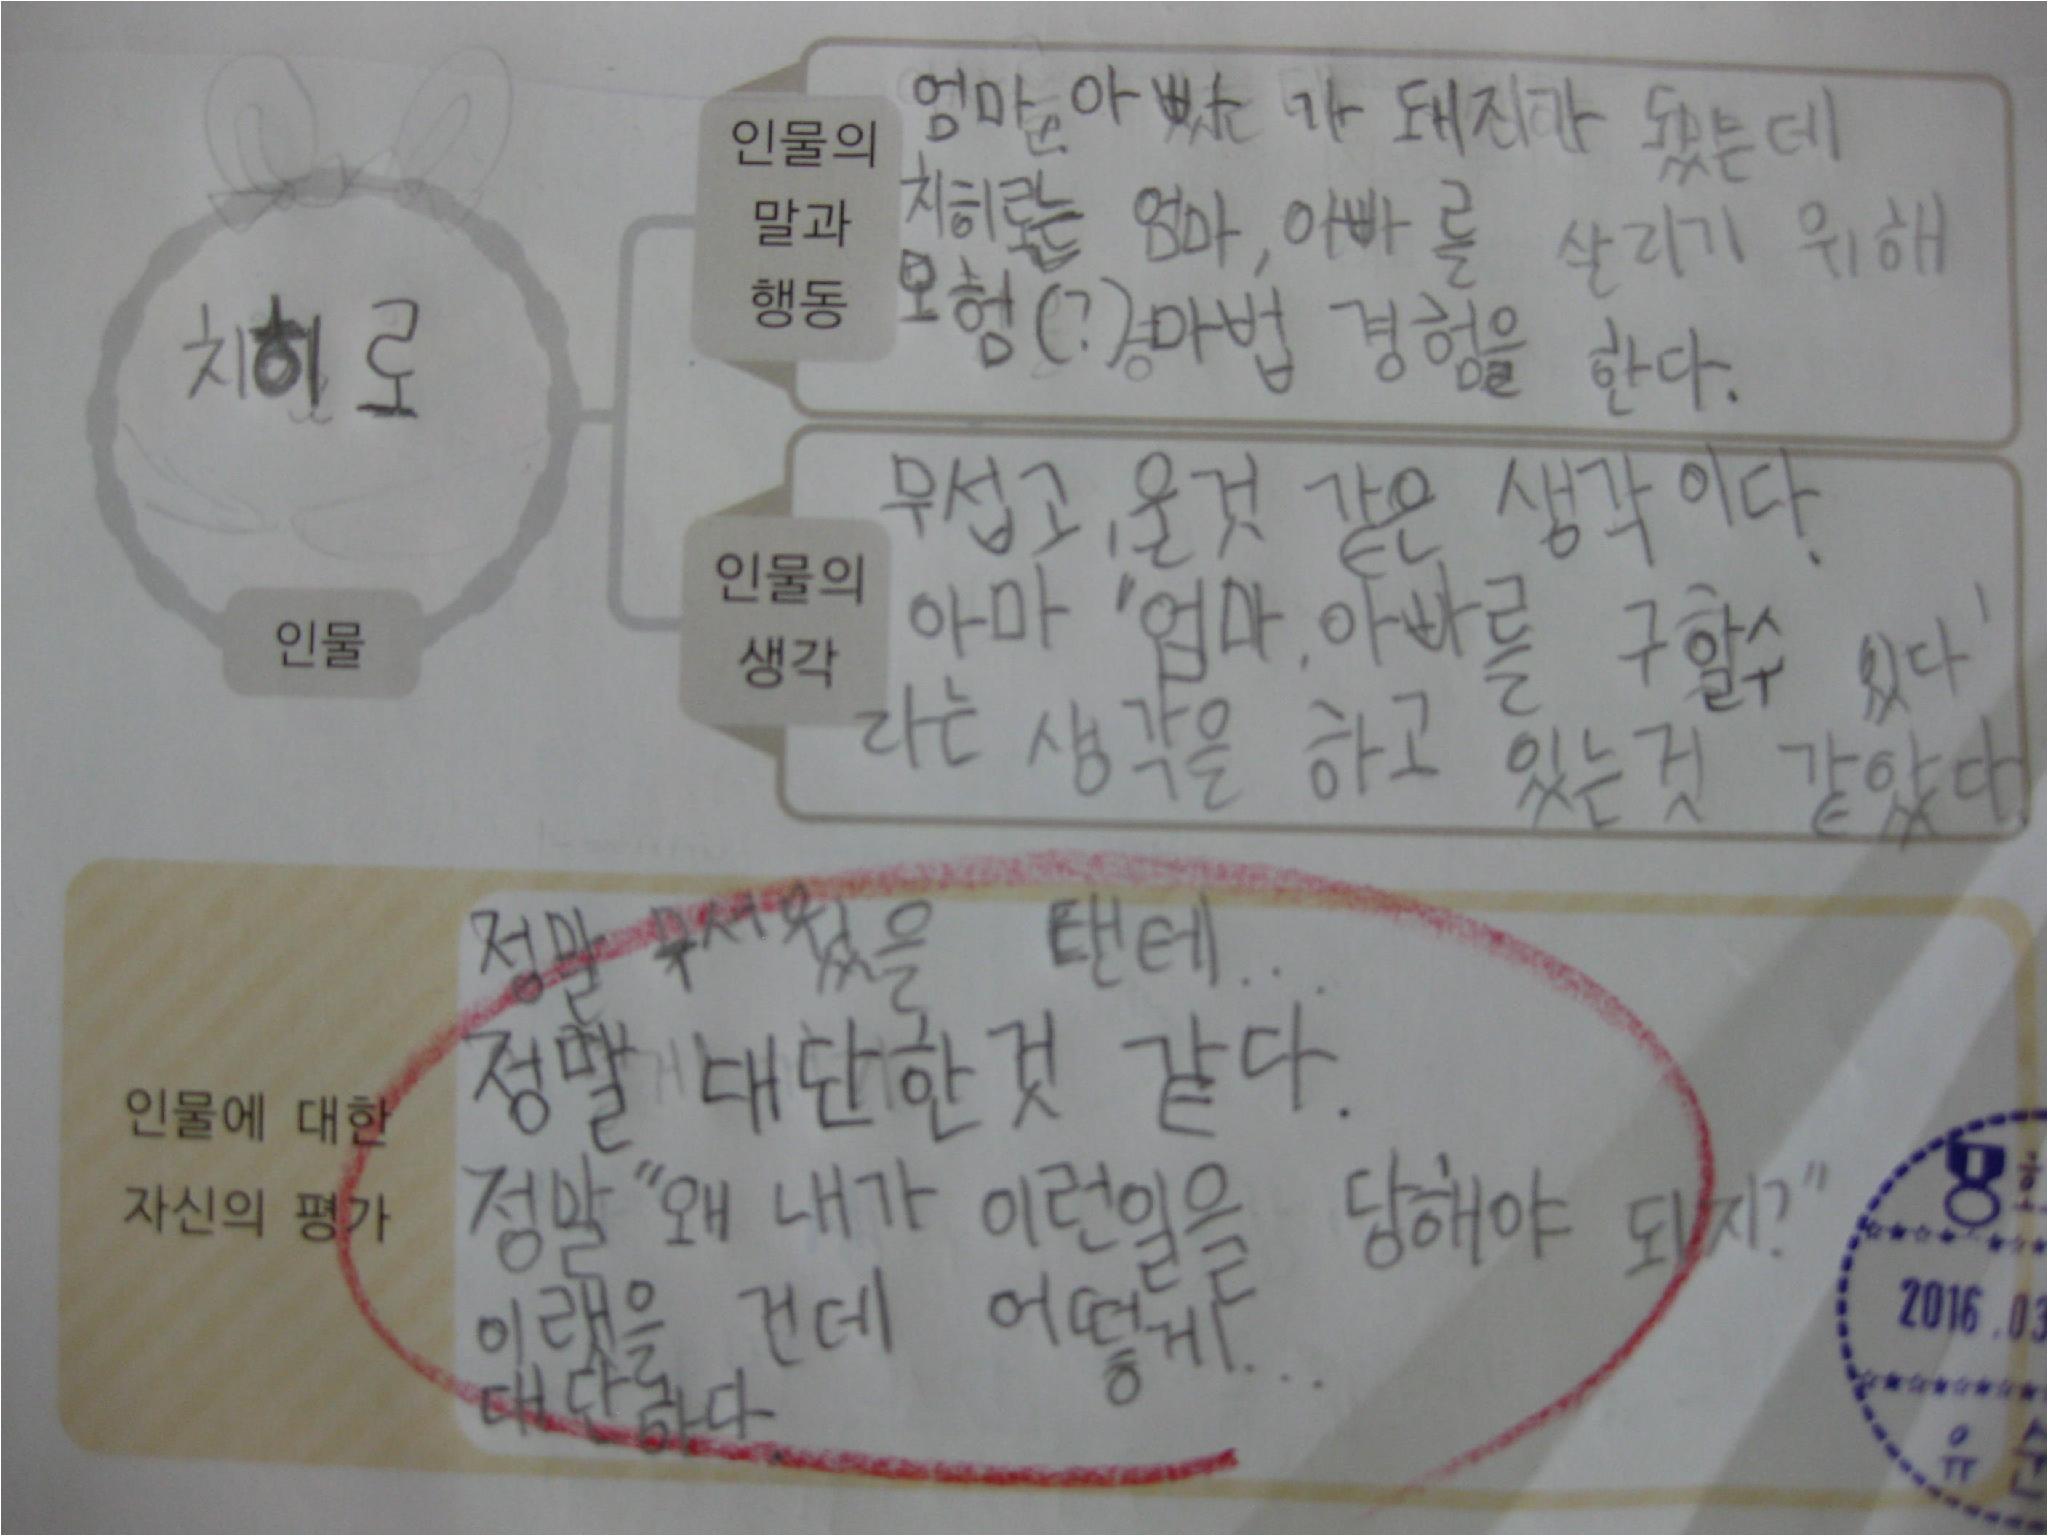 치히로
인물
인물의
말과
행동
엄마는 아빠는 가 돼지가 됬는데
치히로는 엄마, 아빠를 살리기 위해
모험(?) 마법 경험을 한다.
인물의
생각
무섭고, 울것 같은 생각이다.
아마 "엄마, 아빠를 구할수 있다'
라는 생각을 하고 있는것 같았다.
인물에 대한
자신의 평가
정말 무서웠을 탠테...
정말 대단한것 같다.
정말 "왜 내가 이런일을 당해야 되지?"
이랬을 건데 어떻게...
대단하다.
2016.03
유